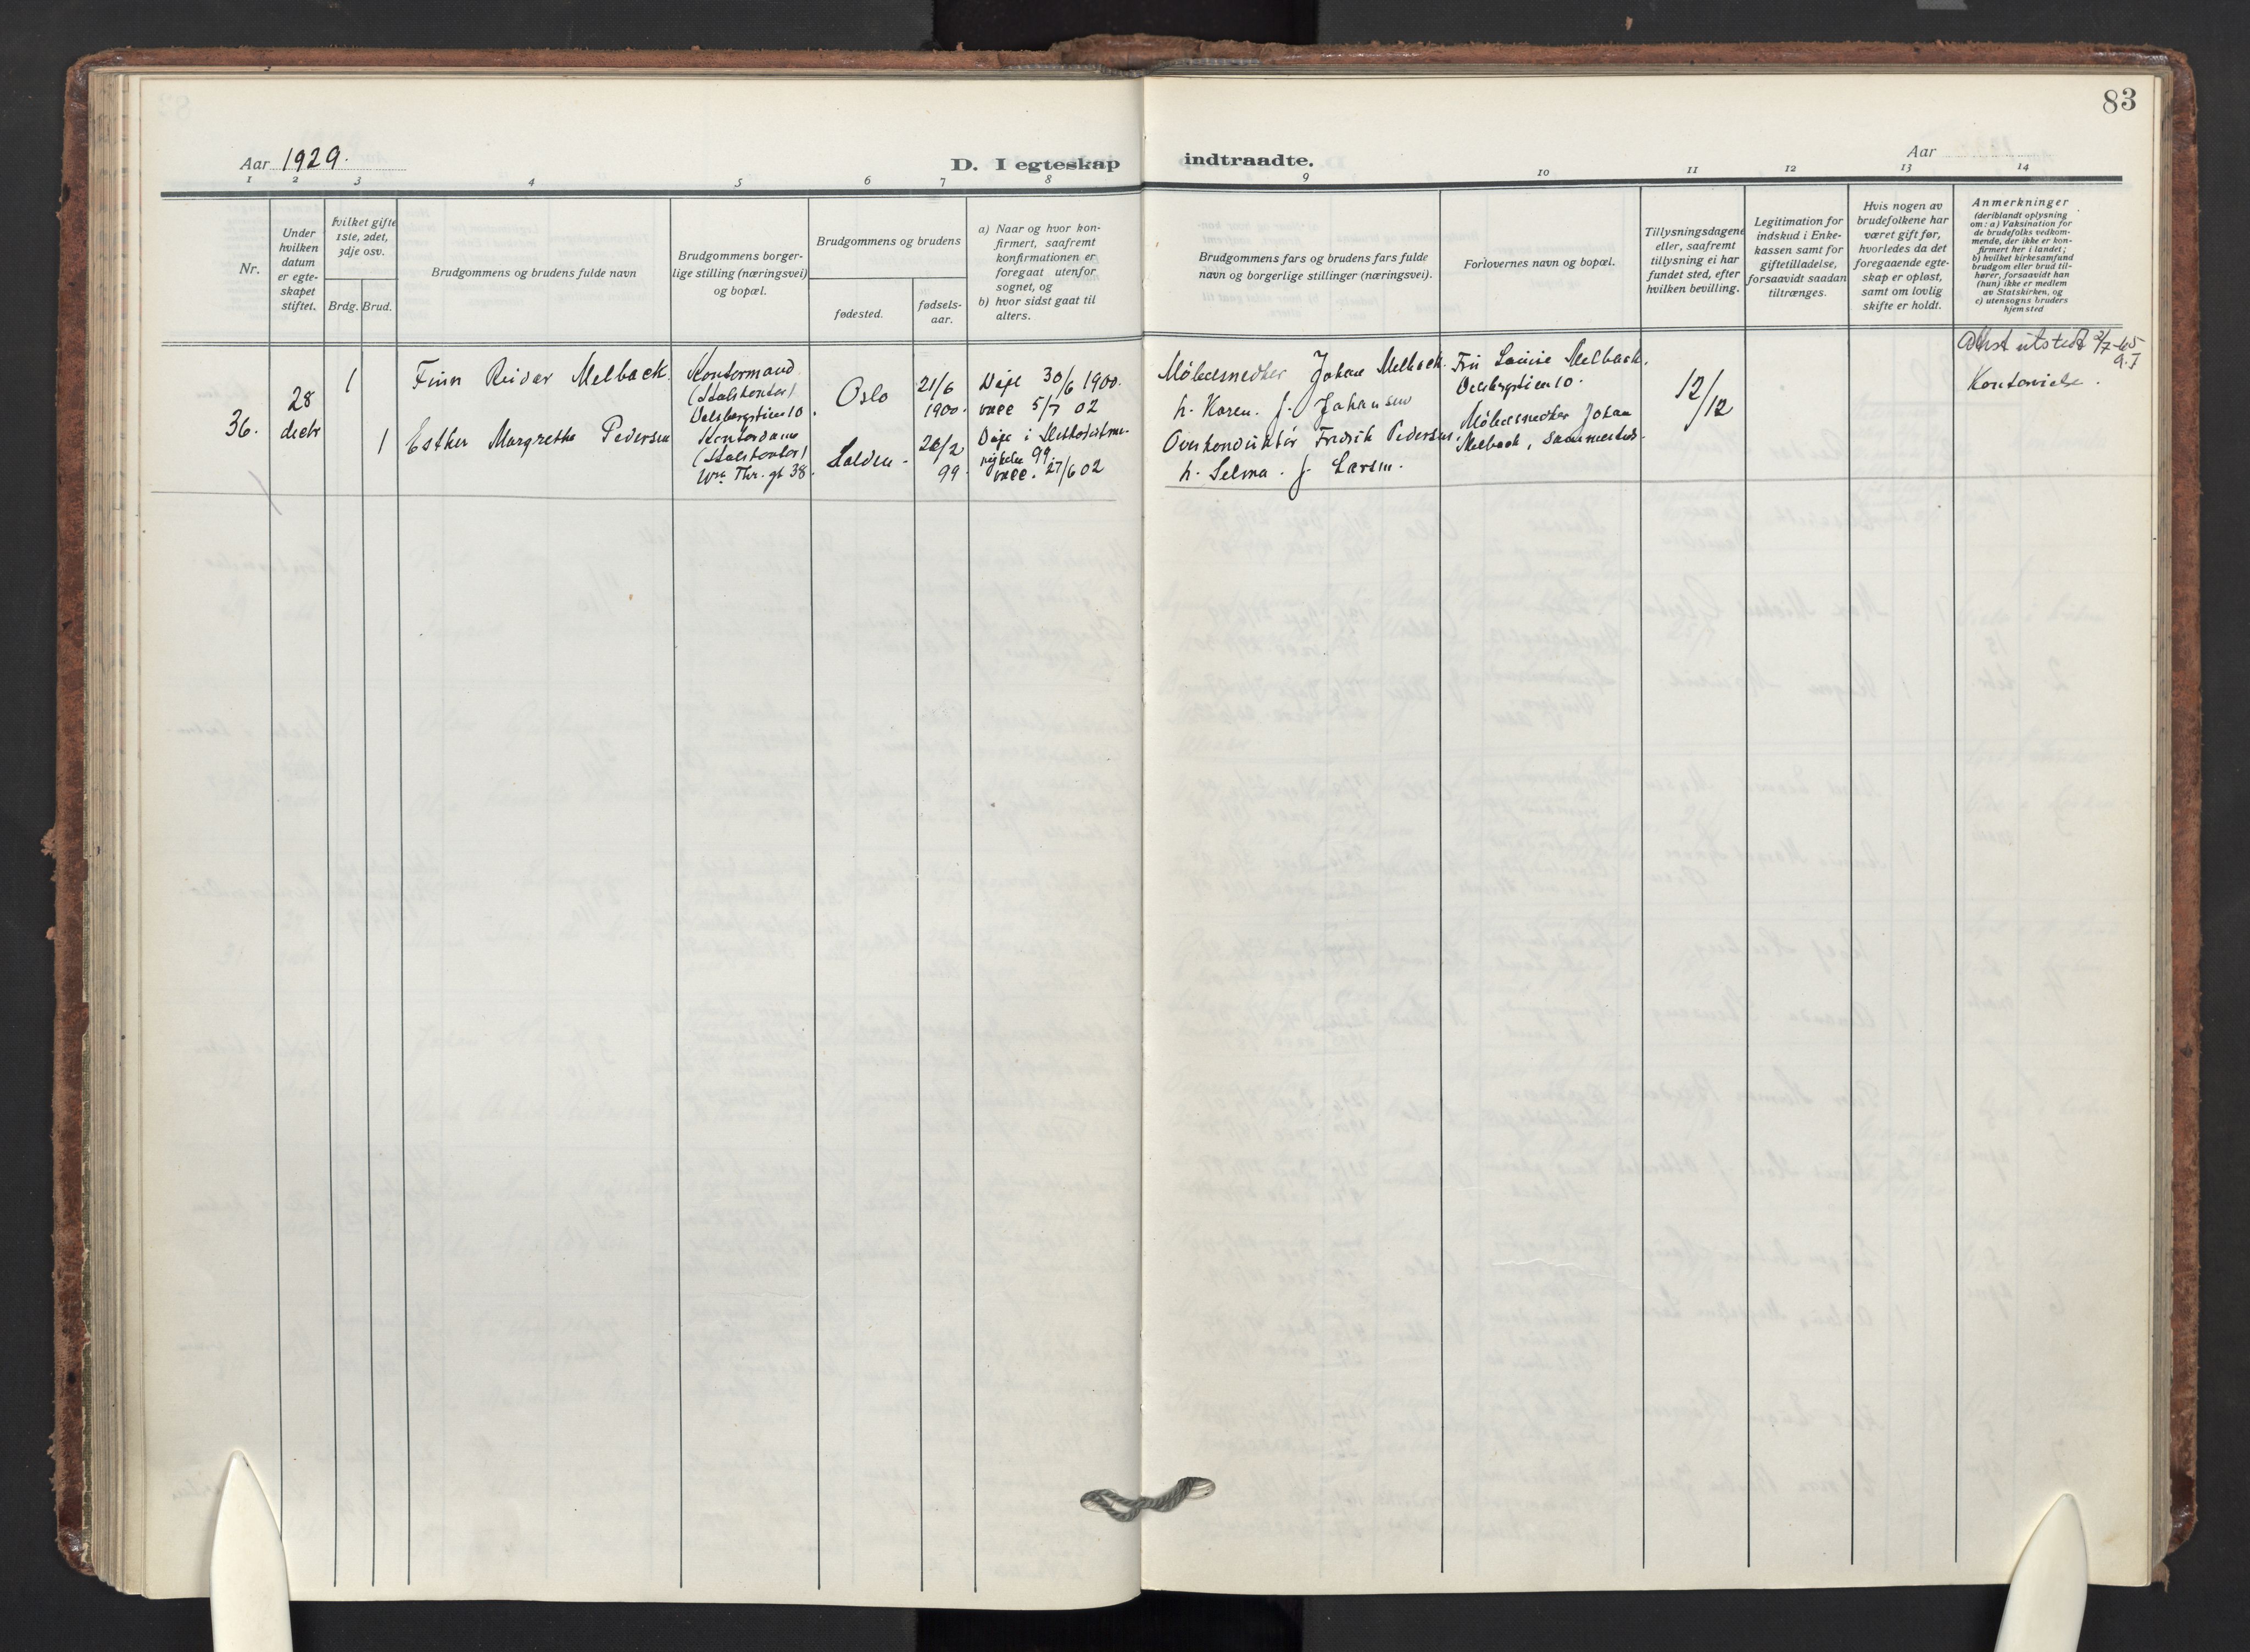 83
Aar 1929.
D. I egteskap
indtraadte.
Aar
1 2 3 4 5 6 7 8
9 10 11 12 13 14
Nr.
Under
hvilken
datum
er egte-
skapet
stiftet.
hvilket gifte
1ste, 2det,
3dje osv.
Brdg. Brud.
Brudgommens og brudens fulde navn
Brudgommens borger-
lige stilling (næringsvei)
og bopæl.
Brudgommens og brudens
fødested.
fødsels-
aar.
a) Naar og hvor kon-
firmert, saafremt
konfirmationen er
foregaat utenfor
sognet, og
b) hvor sidst gaat til
alters.
Brudgommens fars og brudens fars fulde
navn og borgerlige stillinger (næringsvei).
Forlovernes navn og bopæl.
Tillysningsdagene
eller, saafremt
tillysning ei har
fundet sted, efter
hvilken bevilling.
Legitimation for
indskud i Enke-
kassen samt for
giftetilladelse,
forsaavidt saadan
tiltrænges.
Hvis nogen av
brudefolkene har
været gift før,
hvorledes da det
foregaaende egte-
skap er opløst,
samt om lovlig
skifte er holdt.
Anmerkninger
(deriblandt oplysning
om: a) Vaksination for
de brudefolks vedkom-
mende, der ikke er kon-
firmert her i landet;
b) hvilket kirkesamfund
brudgom eller brud til-
hører, forsaavidt han
(hun) ikke er medlem
av Statskirken, og
c) utensogns bruders
hjemsted
36.
28
decbr
1
Finn Reidar Melback.
Kontormand
Valsbergstien 10.
Oslo
21/6
1900.
Døpt 30/6 1900.
vacc 5/7 02
Møbelsnedker Johan Melback.
h. Karen. f. Johansen
Fru Melback.
Valsbergstien 10.
Møbelsnedker Johan
Melback, sammesteds.
12/12
Attest utstedt 3/7-45
Kontorvielse.
1
Esther Margrethe Pedersen
Kontordame
Wm. Thr. gt 38.
Halden.
99.
Døpt i Methodistme-
99.
vacc. 27/6 02
Overkonduktør Fredrik Pedersen.
h. Selma. f. Larsen.